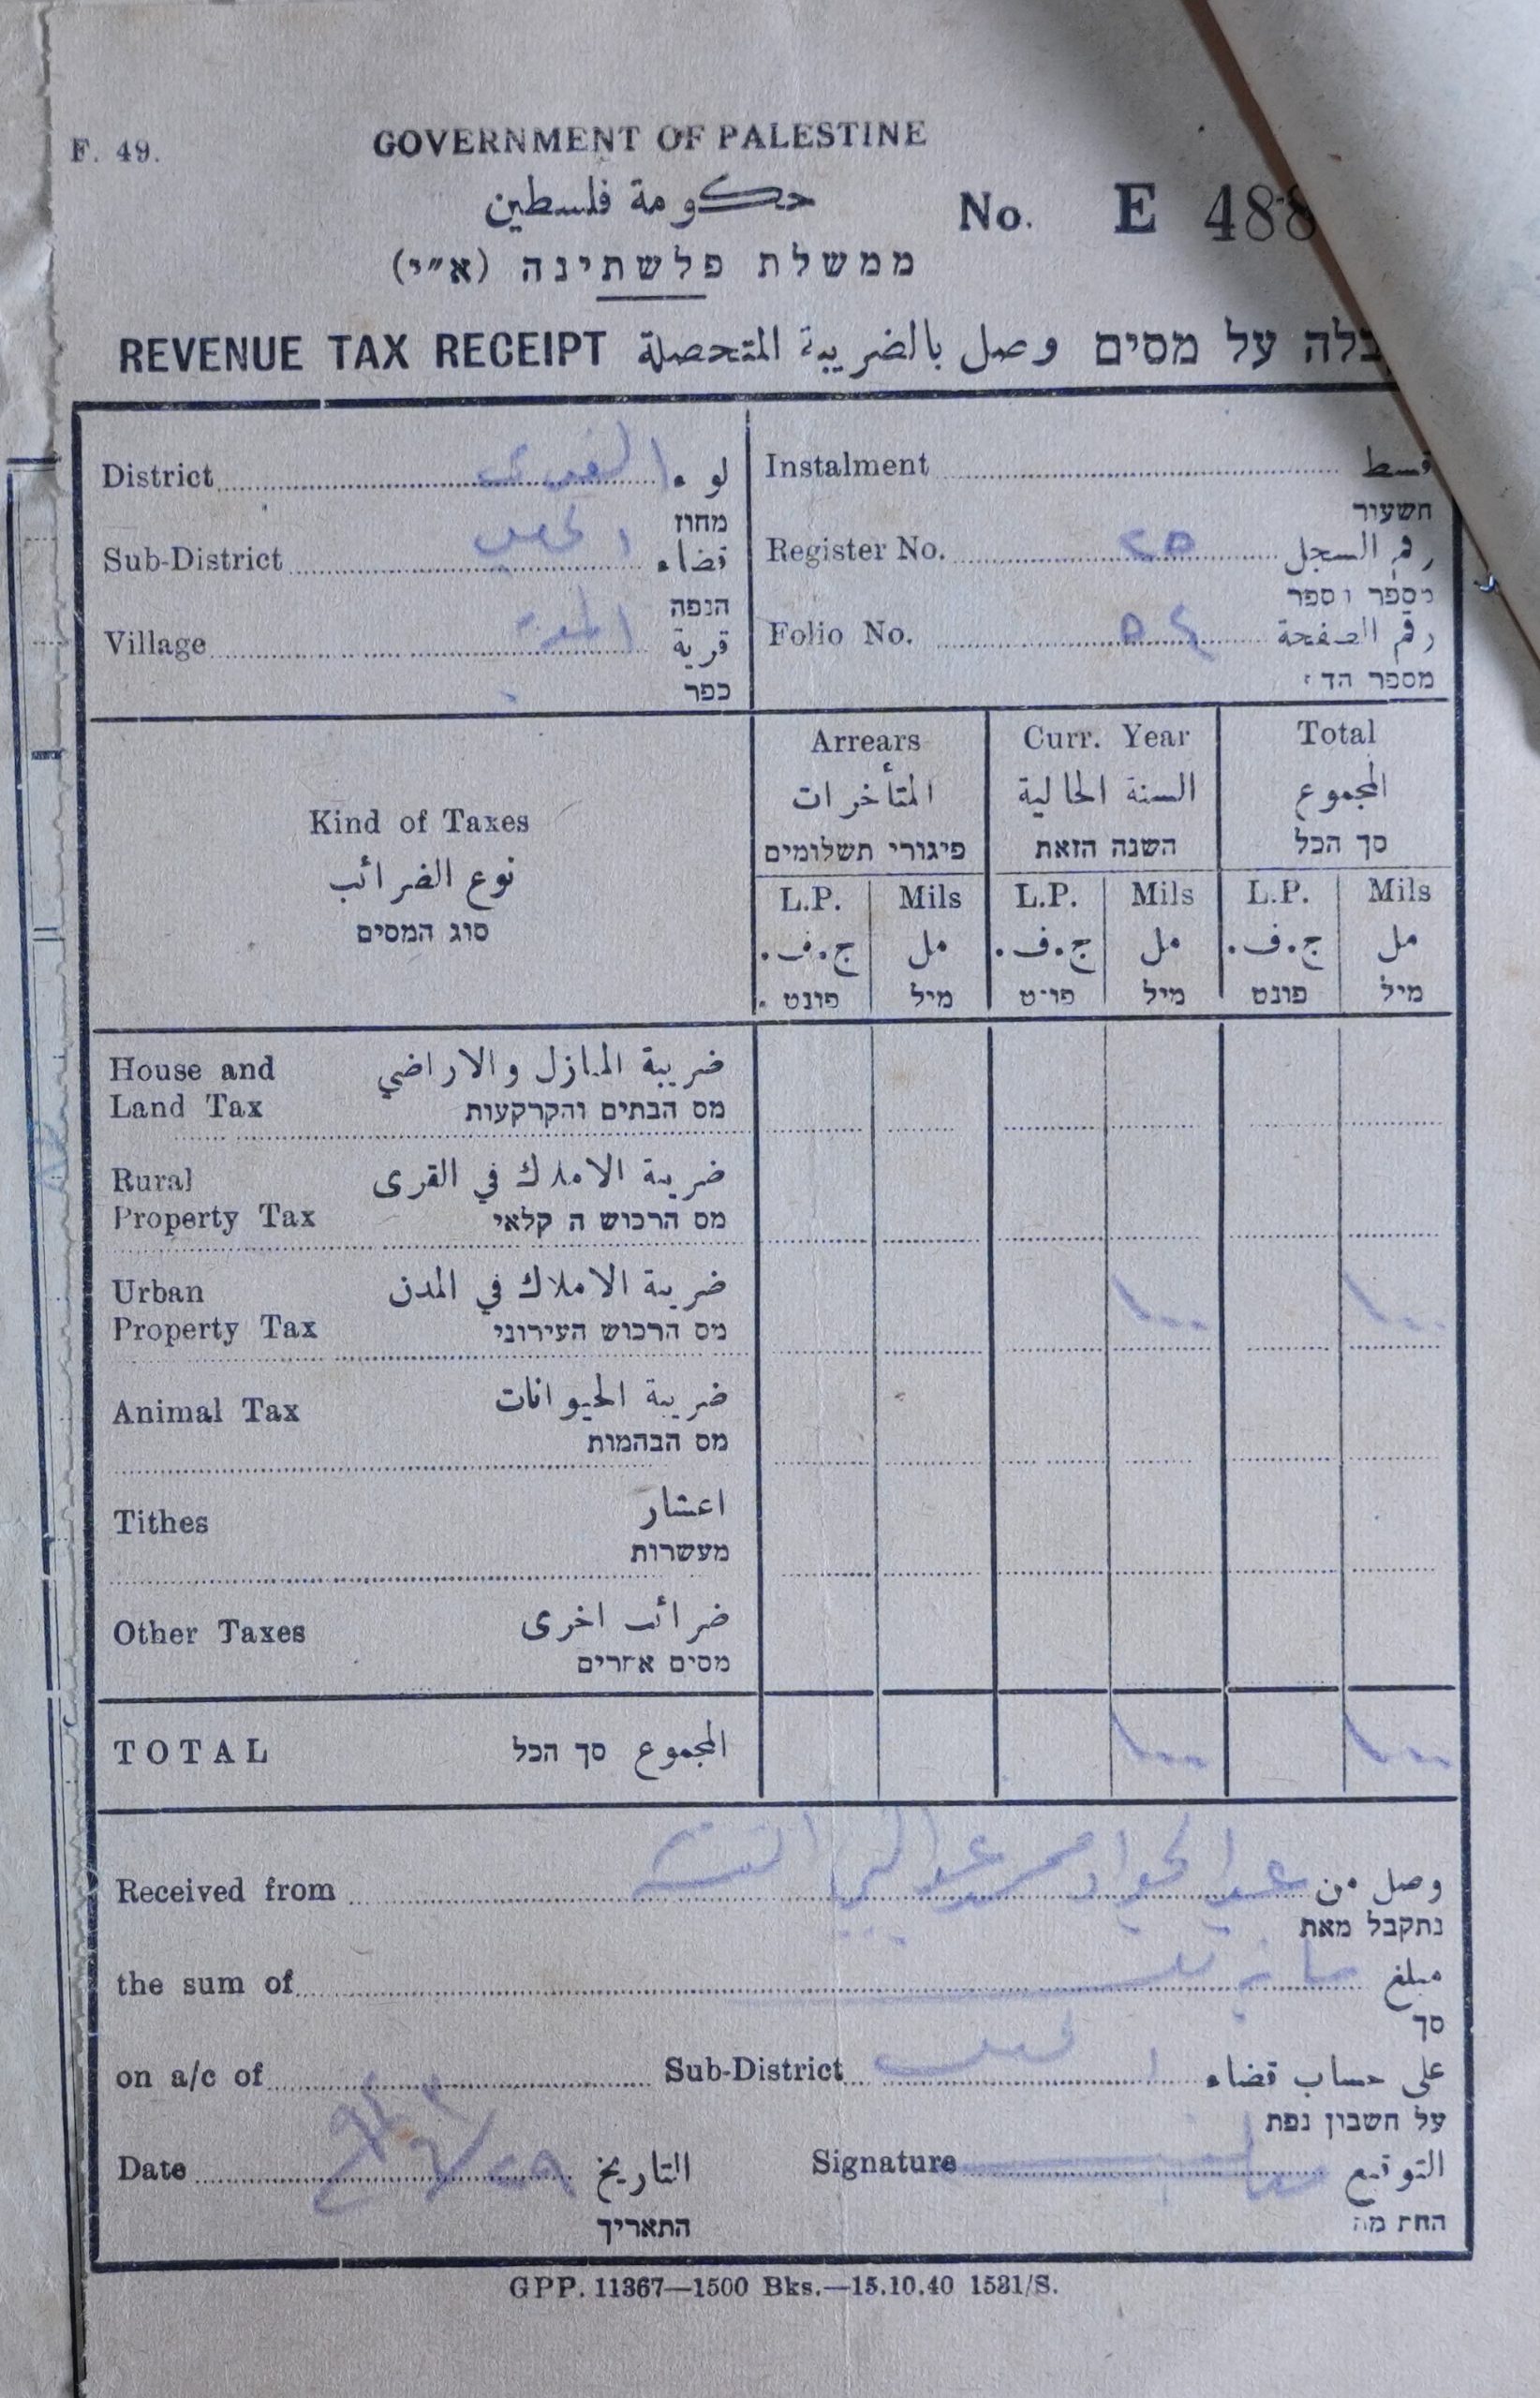 F. 49.
GOVERNMENT OF PALESTINE
حكومة فلسطين
No. E 488
ממשלת פלשתינה (א״י)
REVENUE TAX RECEIPT وصل بالضريبة المتحصلة על מסים
District لواء
מחוז
Sub-District قضاء
הנפה
Village قرية
כפר
Instalment قسط
תשעור
Register No. ٢٥ رقم السجل
מספר וספר
Folio No. ٥٤ رقم الصفحة
מספר הד
Kind of Taxes
نوع الضرائب
סוג המסים
Arrears Curr. Year Total
المتأخرات السنة الحالية المجموع
פיגורי תשלומים השנה הזאת סך הכל
L.P. Mils L.P. Mils L.P. Mils
ج.ف. مل ج.ف. مل ج.ف. مل
פונט מיל פונט מיל פונט מיל
House and Land Tax ضريبة المنازل والاراضي
מס הבתים והקרקעות
Rural Property Tax ضريبة الاملاك في القرى
מס הרכוש ה קלאי
Urban Property Tax ضريبة الاملاك في المدن ١٠٠ ١٠٠
מס הרכוש העירוני
Animal Tax ضريبة الحيوانات
מס הבהמות
Tithes اعشار
מעשרות
Other Taxes ضرائب اخرى
מסים אחרים
TOTAL المجموع סך הכל ١٠٠ ١٠٠
Received from عبد الجواد محمد عبد النبي وصل من
נתקבל מאת
the sum of مبلغ
סך
on a/c of Sub-District على حساب قضاء
על חשבון נפת
Date التاريخ Signature التوقيع
התאריך החתמה
GPP. 11367—1500 Bks.—15.10.40 1531/S.